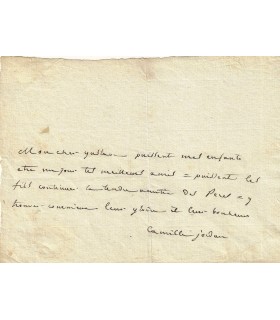 Mon cher guillau puissent mes enfants
etre un jour tes meilleurs amis = puissent les
fils continuer la tendre amitié des Peres = y
trouver comme eux leur gloire et leur bonheur
Camille jordan